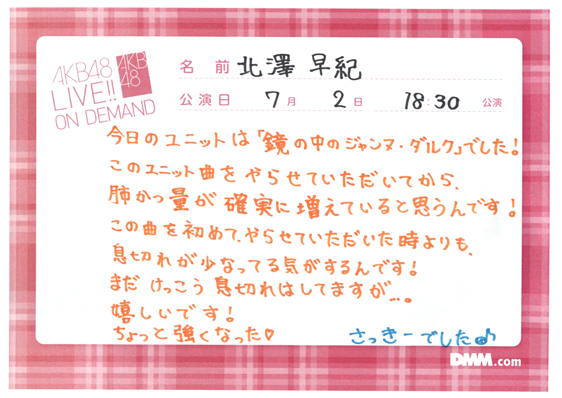 AKB48
LIVE!!
ON DEMAND
AKB
48
名前 北澤 早紀
公演日 7月 2日 18:30 公演
今日のユニットは「鏡の中のジャンヌ・ダルク」でした!
このユニット曲をやらせていただいてから、
肺かつ量が確実に増えていると思うんです!
この曲を初めて、やらせていただいた時よりも、
息切れが少なってる気がするんです!
まだ けっこう 息切れはしてますが…。
嬉しいです!
ちょっと強くなった♡
さっきーでした♪
DMM.com